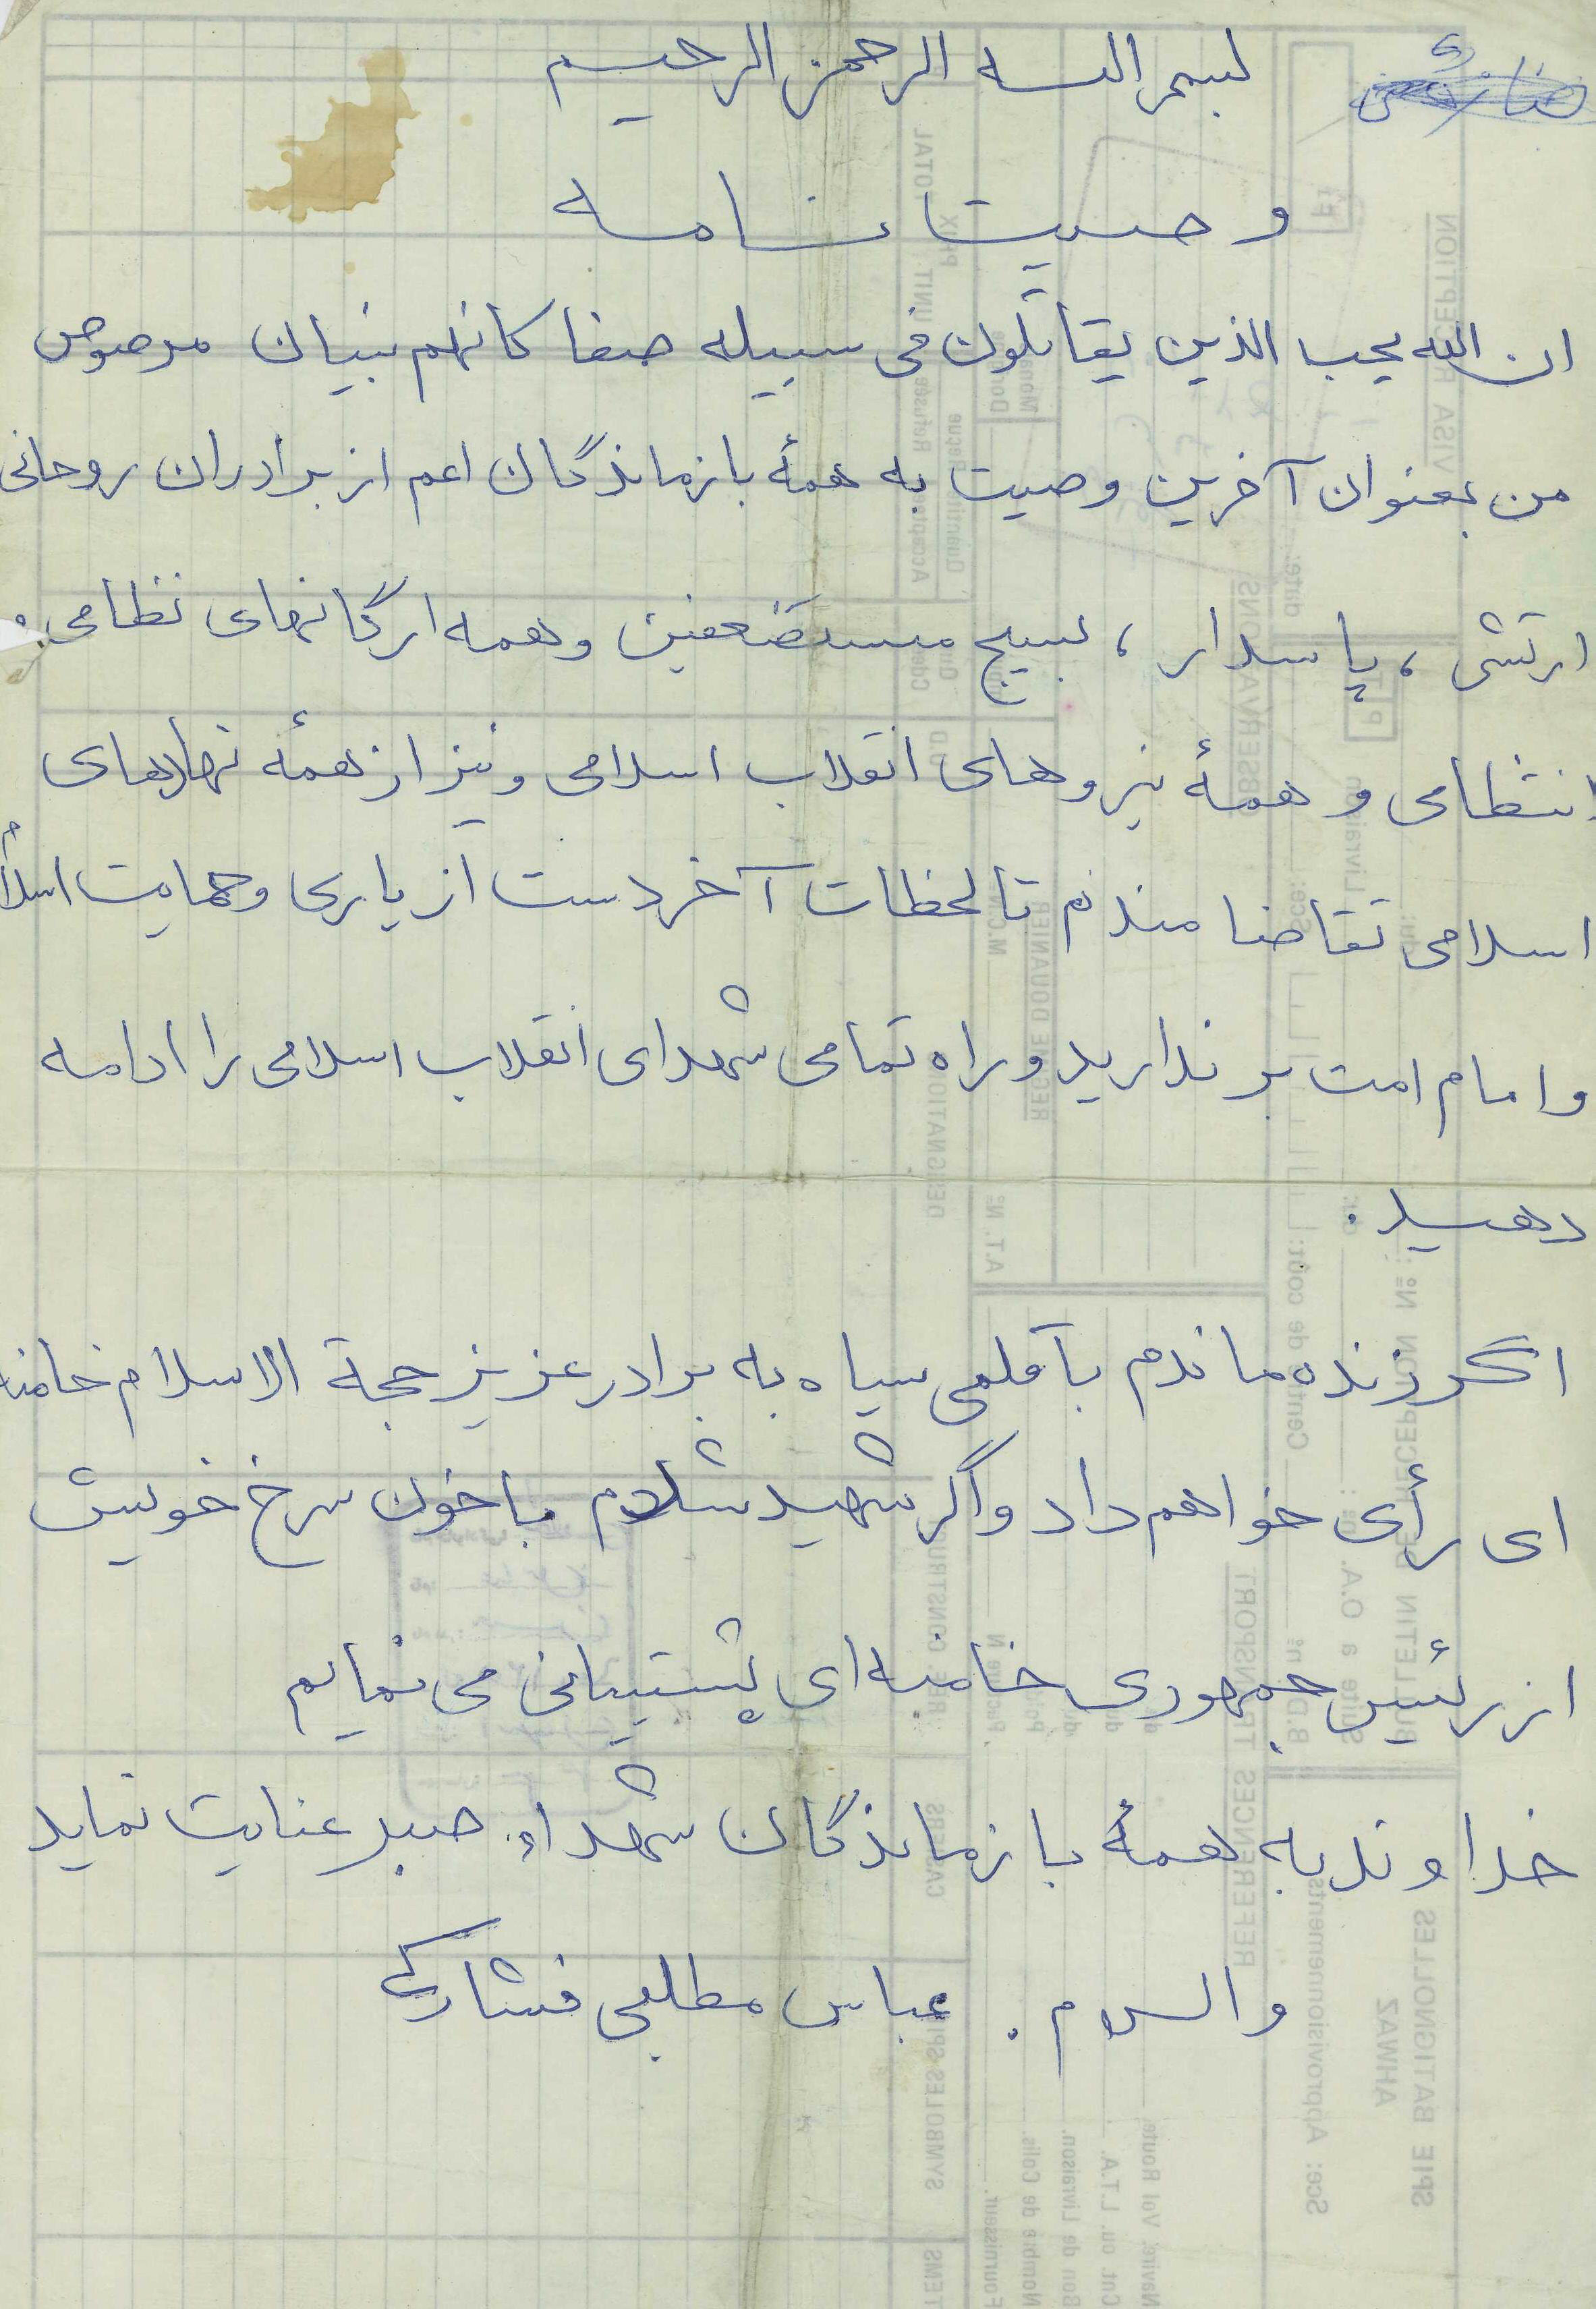 بسم الله الرحمن الرحیم
وصیت نامه
ان الله یحب الذین یقاتلون فی سبیله صفا کانهم بنیان مرصوص
من بعنوان آخرین وصیت به همهٔ بازماندگان اعم از برادران روحانی
ارتشی ، پاسدار ، بسیج مستضعفین و همه ارگانهای نظامی.
انتظامی و همهٔ نیروهای انقلاب اسلامی و نیز از همهٔ نهادهای
اسلامی تقاضا مندم تا لحظات آخر دست از یاری و حمایت اسلام
و امام امت بر ندارید و راه تمامی شهدای انقلاب اسلامی را ادامه
دهید.
اگر زنده ماندم با قلمی سیاه به برادر عزیز حجة الاسلام خامنه
ای رأی خواهم داد و اگر شهید شدم با خون سرخ خویش
از رئیس جمهوری خامنه ای پشتیبانی می نمایم
خداوند به همهٔ بازماندگان شهداء صبر عنایت نماید
والسلام. عباس مطلبی فشارکی
SPIE BATIGNOLLES
AHWAZ
Sce: Approvisionnements
REFERENCES TRANSPORT
Navire, Vol Route
Cnt ou. L.T.A.
Bon de Livraison.
Nombre de Colis.
Fournisseur.
BULLETIN DE RECEPTION Nº :
Suite a O.A. nº :
B.D. nº
Centre de coût:
OBSERVATIONS
VISA RECEPTION
date:
REGIME DOUANIER
A.T. Nº
DESIGNATION
SYMBOLES SPIE
ITEMS
TOTAL
PRIX
UNIT